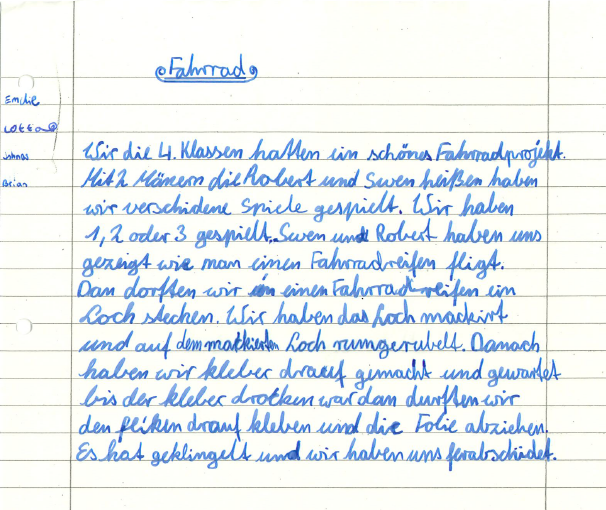 Fahrrad
Emilie
Lotta
Johnas
Brian
Wir die 4. Klassen hatten ein schönes Fahrradprojekt.
Mit 2 Mänern die Robert und Swen heißen haben
wir verschidene Spiele gespielt. Wir haben
1, 2 oder 3 gespielt. Swen und Robert haben uns
gezeigt wie man einen Fahrradreifen fligt.
Dan dorften wir in einen Fahrradreifen ein
Loch stechen. Wir haben das Loch mackirt
und auf dem markierten Loch rumgerubelt. Danach
haben wir kleber drauf gemacht und gewartet
bis der kleber drocken war dan durften wir
den fliken drauf kleben und die Folie abziehen.
Es hat geklingelt und wir haben uns ferabschidet.